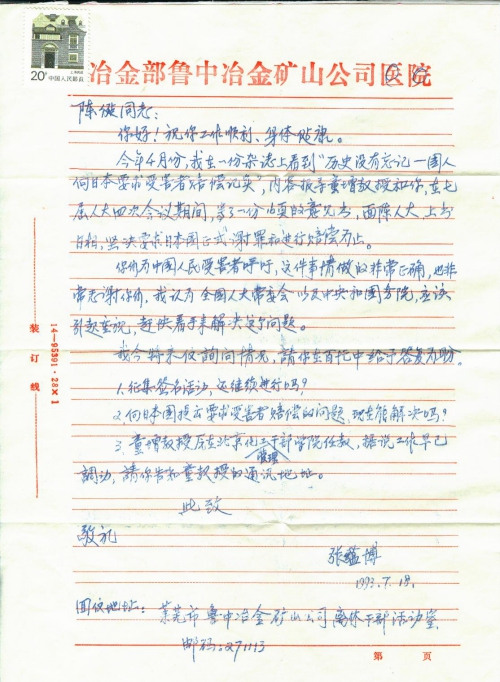 20分 中国人民邮政
冶金部鲁中冶金矿山公司医院
陈健同志：
你好！祝你工作顺利、身体健康。
今年4月份，我在一份杂志上看到“历史没有忘记—国人
向日本要求受害者赔偿记实”，内容报导童增教授和你，在七
届人大四次会议期间，写了一份 页的意见书，面陈人大，上书
日相，坚决要求日本国正式谢罪和进行赔偿为止。
你们为中国人民受害者呼吁，这件事情做的非常正确，也非
常感谢你们，我认为全国人大常委会以及中央和国务院，应该
引起重视，赶快着手来解决这个问题。
我今特来信詢问情况，請你在百忙中给予答复为盼。
1.征集签名活动，还继续进行吗？
2.向日本国提出要求受害者赔偿的问题，现在能解决吗？
3.童增教授原在北京化工管理干部学院任教，据说工作早已
調动，請你告知童教授的通讯地址。
此致
敬礼
张蕴博
1993.7.18.
回信地址：莱芜市鲁中冶金矿山公司离休干部活动室
邮码：271113
装订线
14—95391·28×1
第 页